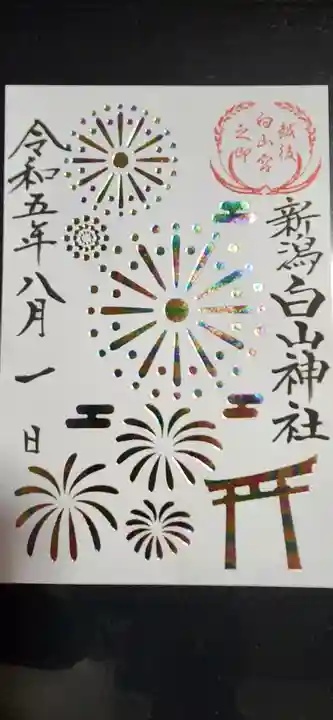 越後
白山宮
之印
新潟白山神社
令和五年八月一日